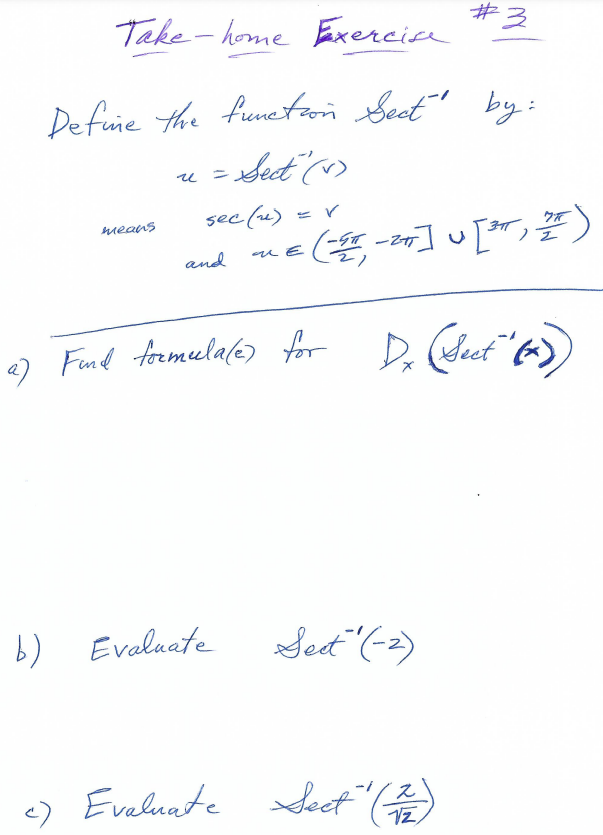 Take-home Exercise #3
Define the function Sect⁻¹ by:
u = Sect⁻¹(v)
means sec(u) = v
and u ∈ (-5π/2, -2π] ∪ [3π, 7π/2)
a) Find formula(e) for Dₓ(Sect⁻¹(x))
b) Evaluate Sect⁻¹(-2)
c) Evaluate Sect⁻¹(2/√2)